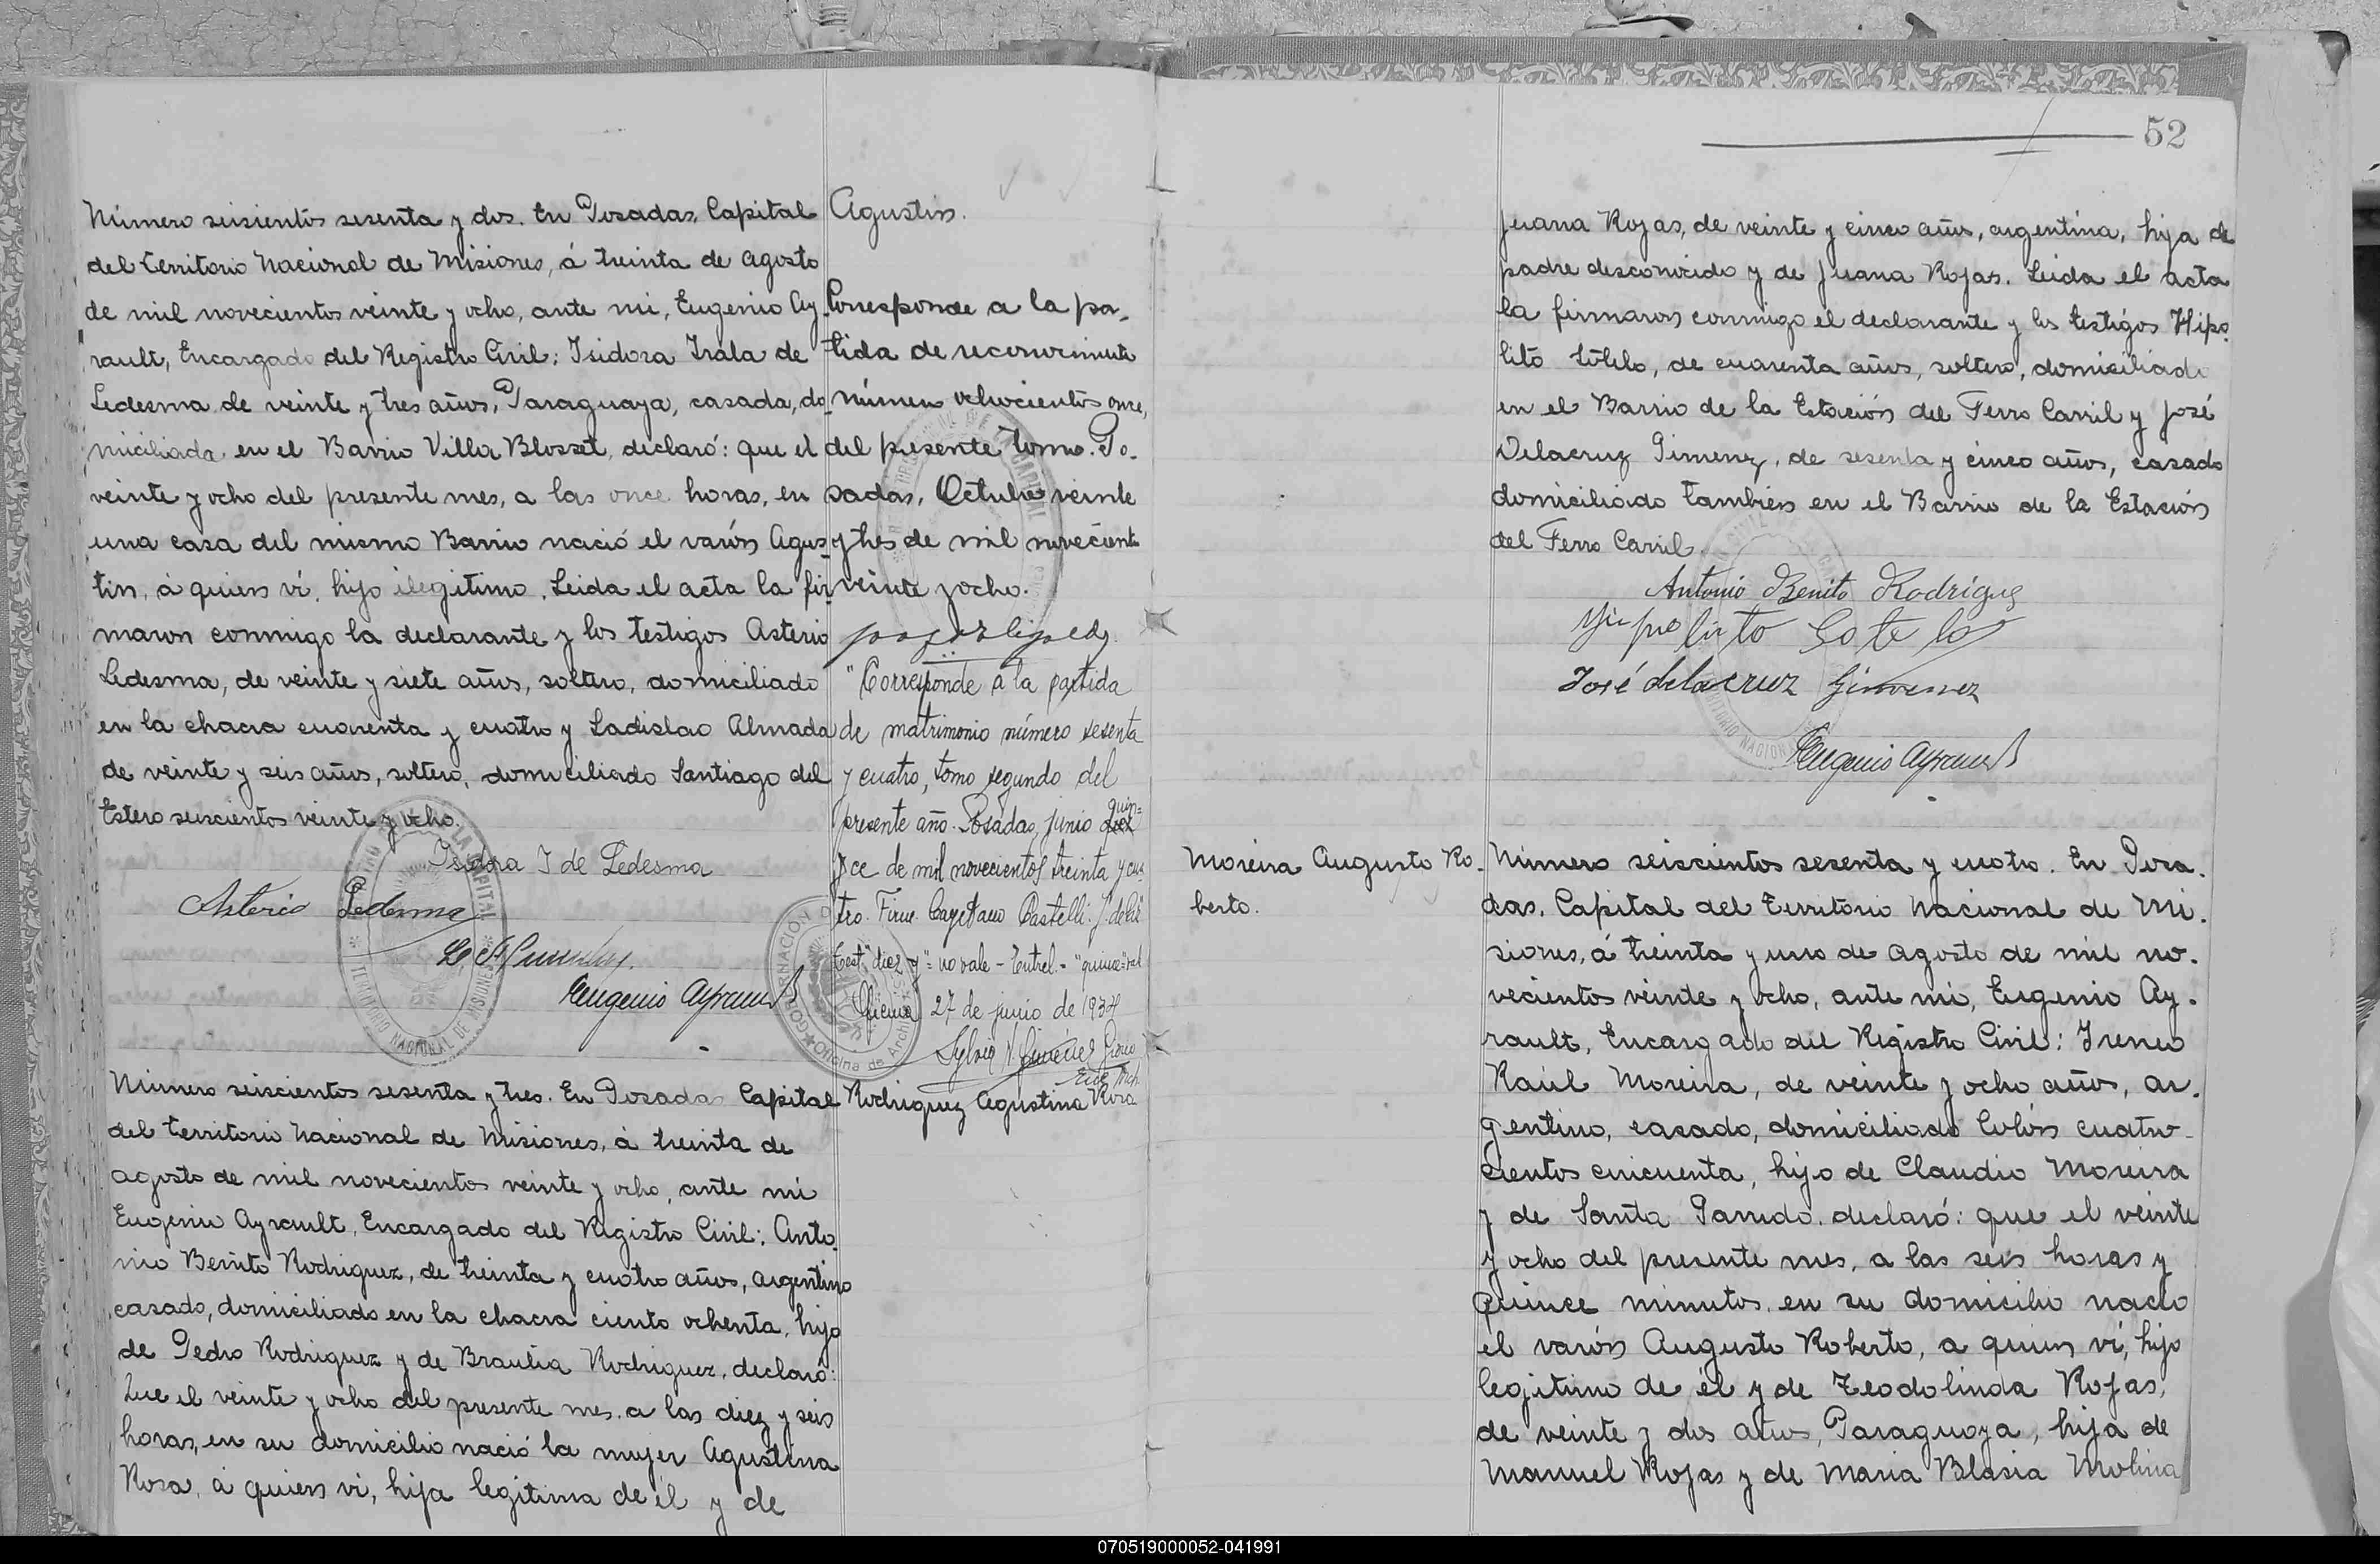 Número seisientos sesenta y dos. En Posadas, Capital
del Territorio Nacional de Misiones, á treinta de agosto
de mil novecientos veinte y ocho, ante mi, Eugenio Ay-
rault, Encargado del Registro Civil: Isidora Irala de
Ledesma de veinte y tres años, Paraguaya, casada, do-
miciliada en el Barrio Villa Blosset, declaró: que el
veinte y ocho del presente mes, a las once horas, en
una casa del mismo Barrio nació el varón Agus-
tin, á quien ví, hijo ilegitimo. Leida el acta la fir-
maron conmigo la declarante y los testigos Asterio
Ledesma, de veinte y siete años, soltero, domiciliado
en la chacra cuarenta y cuatro y Ladislao Almada
de veinte y seis años, soltero, domiciliado Santiago del
Estero seiscientos veinte y ocho.
Isidora I de Ledesma
Asterio Ledesma
Eugenio Ayrault
Agustin.
Corresponde a la par-
tida de reconocimiento
número ochocientos once,
del presente tomo. Po-
sadas, Octubre veinte
y tres de mil novecient
veinte y ocho.
"Corresponde a la partida
de matrimonio número sesenta
y cuatro, tomo segundo del
presente año. Posadas, junio diez quin=
y ce de mil novecientos treinta y cua
tro. Firm. Cayetano Castelli. J. de
Test. "diez y" = no vale - Entrel. = "quince" val
Oficina 27 de junio de 1934
Número seiscientos sesenta y tres. En Posadas Capital
del territorio Nacional de Misiones, á treinta de
agosto de mil novecientos veinte y ocho, ante mi
Eugenio Ayrault, Encargado del Registro Civil: Anto-
nio Benito Rodriguez, de treinta y cuatro años, argentino
casado, domiciliado en la chacra ciento ochenta, hijo
de Pedro Rodriguez y de Braulia Rodriguez, declaró:
Que el veinte y ocho del presente mes a las diez y seis
horas, en su domicilio nació la mujer Agustina
Rosa, á quien vi, hija legitima de él y de
Rodriguez Agustina Rosa
52
Juana Rojas, de veinte y cinco años, argentina, hija de
padre desconocido y de Juana Rojas. Leida el acta
la firmaron conmigo el declarante y los testigos Hipo-
lito Sotelo, de cuarenta años, soltero, domiciliado
en el Barrio de la Estación del Ferro Carril y José
Delacruz Gimenez, de sesenta y cinco años, casado
domiciliado tambien en el Barrio de la Estación
del Ferro Carril.
Antonio Benito Rodriguez
Hipolito Sotelo
José delacruz Gimenez
Eugenio Ayrault
Moreira Augusto Ro-
berto.
Número seiscientos sesenta y cuatro. En Posa-
das, Capital del Territorio Nacional de Mi-
siones, á treinta y uno de agosto de mil no-
vecientos veinte y ocho, ante mi, Eugenio Ay-
rault, Encargado del Registro Civil: Ireneo
Raúl Moreira, de veinte y ocho años, ar-
gentino, casado, domiciliado Colón cuatro-
cientos cincuenta, hijo de Claudio Moreira
y de Santa Parrido, declaró: que el veinte
y ocho del presente mes, a las seis horas y
quince minutos, en su domicilio nació
el varón Augusto Roberto, a quien ví, hijo
legitimo de él y de Teodolinda Rojas,
de veinte y dos años, Paraguaya, hija de
Manuel Rojas y de Maria Blasia Molina
070519000052-041991